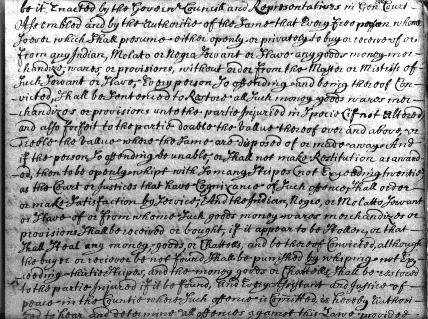 be it Enacted by the Govern: Council and Representatives in Gen: Court
Assembled and by the Authoritie of the Same that Every free person whome
soever which Shall presume either openly or privately to buy or receive of or
from any Indian, Molato or Negro Servant or Slave any goods money mer-
chandize wares, or provisions, without order from the Master or Mistress of
such Servant or Slave, Every person So offending and being thereof Con-
victed, Shall be Sentenced to Restore all Such money goods wares mer-
chandizes or provisions unto the partie Injured in Specie if not altered
and also forfeit to the partie double the value thereof over and above, or
treble the value where the Same are disposed of or made away. And
if the person So offending be unable, or Shall not make Restitution as award
ed, then to be openly whipt with So many Stripes not Exceeding twentie
as the Court or Justices that have Cognizance of Such offence Shall order
or make Satisfaction by Service. And the Indian, Negro, or Molatto Servant
or Slave of or from whome Such goods money wares merchandizes or
provisions Shall be received or bought, if it appear to be Stolen, or that
Shall Steal any money, goods, or Chattels, and be thereof Convicted, although
the buyer or receiver be not found, Shall be punished by whiping not Ex-
ceeding thirtie Stripes, and the money goods or Chattels Shall be restored
to the partie Injured if it be found, And Every Assistant and Justice of
peace in the Countie where Such offence is Comitted, is hereby Authori-
zed to hear and determine all offences against this Law provided